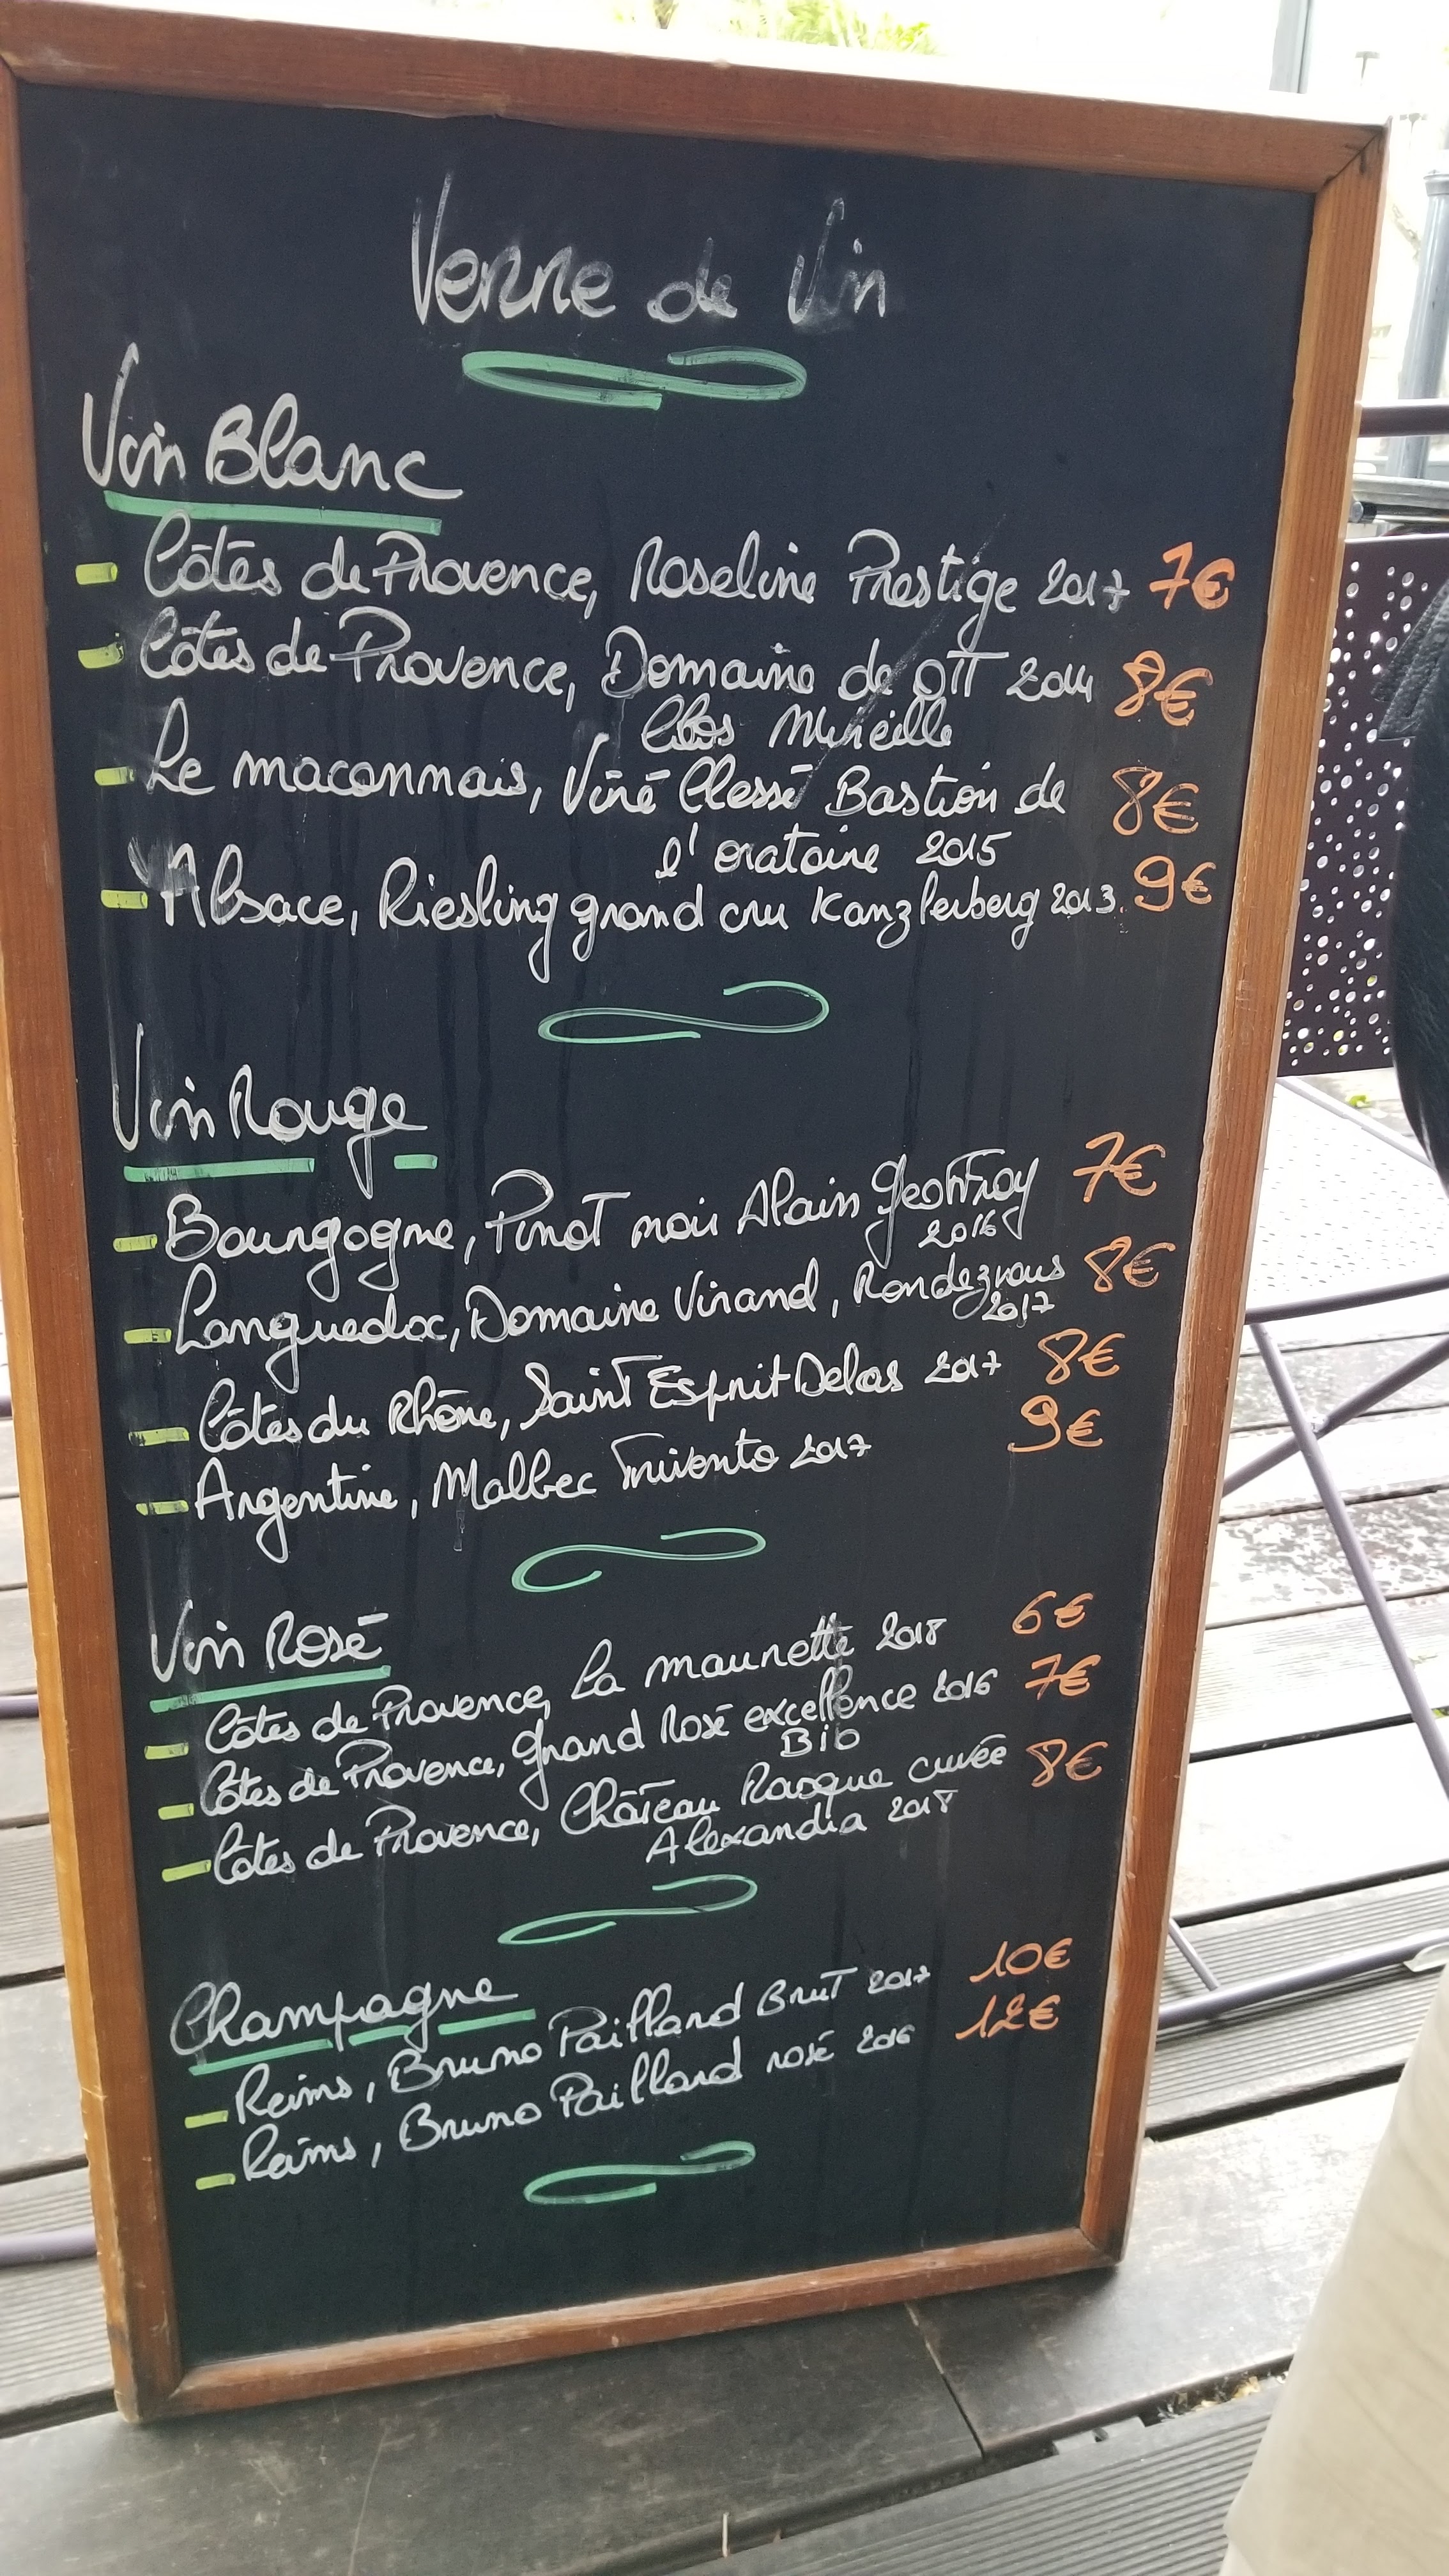 Verre de Vin
Vin Blanc
Côtes de Provence, Roseline Prestige 2017 7€
Côtes de Provence, Domaine de OTT 2014 8€
Clos Mireille
Le maconnais, Viré Clessé Bastion de 8€
l'oratoire 2015
Alsace, Riesling grand cru Kanzlerberg 2013. 9€
Vin Rouge
Bourgogne, Pinot noir Alain Geoffroy 7€
2016
Languedoc, Domaine Virand, Rendez vous 8€
2017
Côtes du Rhône, Saint Esprit Delas 2017 8€
Argentine, Malbec Trivento 2017 9€
Vin Rosé
Côtes de Provence, La maurette 2018 6€
Côtes de Provence, Grand Rosé excellence 2016 7€
Bio
Côtes de Provence, Château Rasque cuvée 8€
Alexandra 2018
Champagne
Reims, Bruno Paillard Brut 2017 10€
Reims, Bruno Paillard rosé 2016 12€